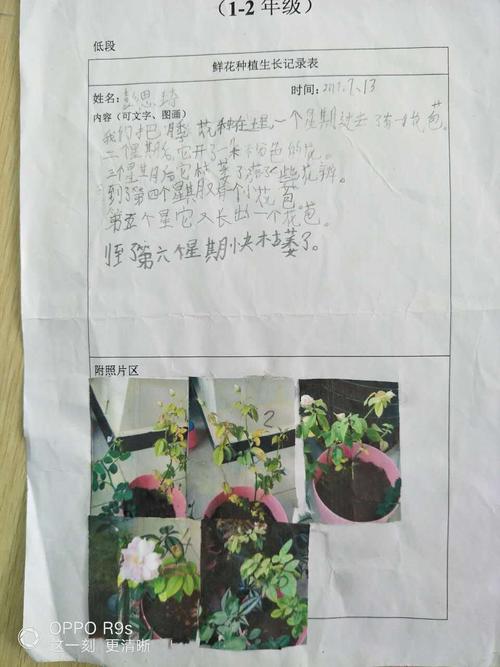 （1-2 年级）
低段
鲜花种植生长记录表
姓名：彭思琦 时间：2017.7.13
内容（可文字、图画）
我们把 花种在土里,一个星期过去了有一 花苞。
二个星期后它开了一朵 色的花。
三个星期后它枯萎了落了一些花瓣。
到了第四个星期又有个小花苞。
第五个星它又长出一个花苞。
到了第六个星期快枯萎了。
附照片区
2
OPPO R9s
这一刻 更清晰